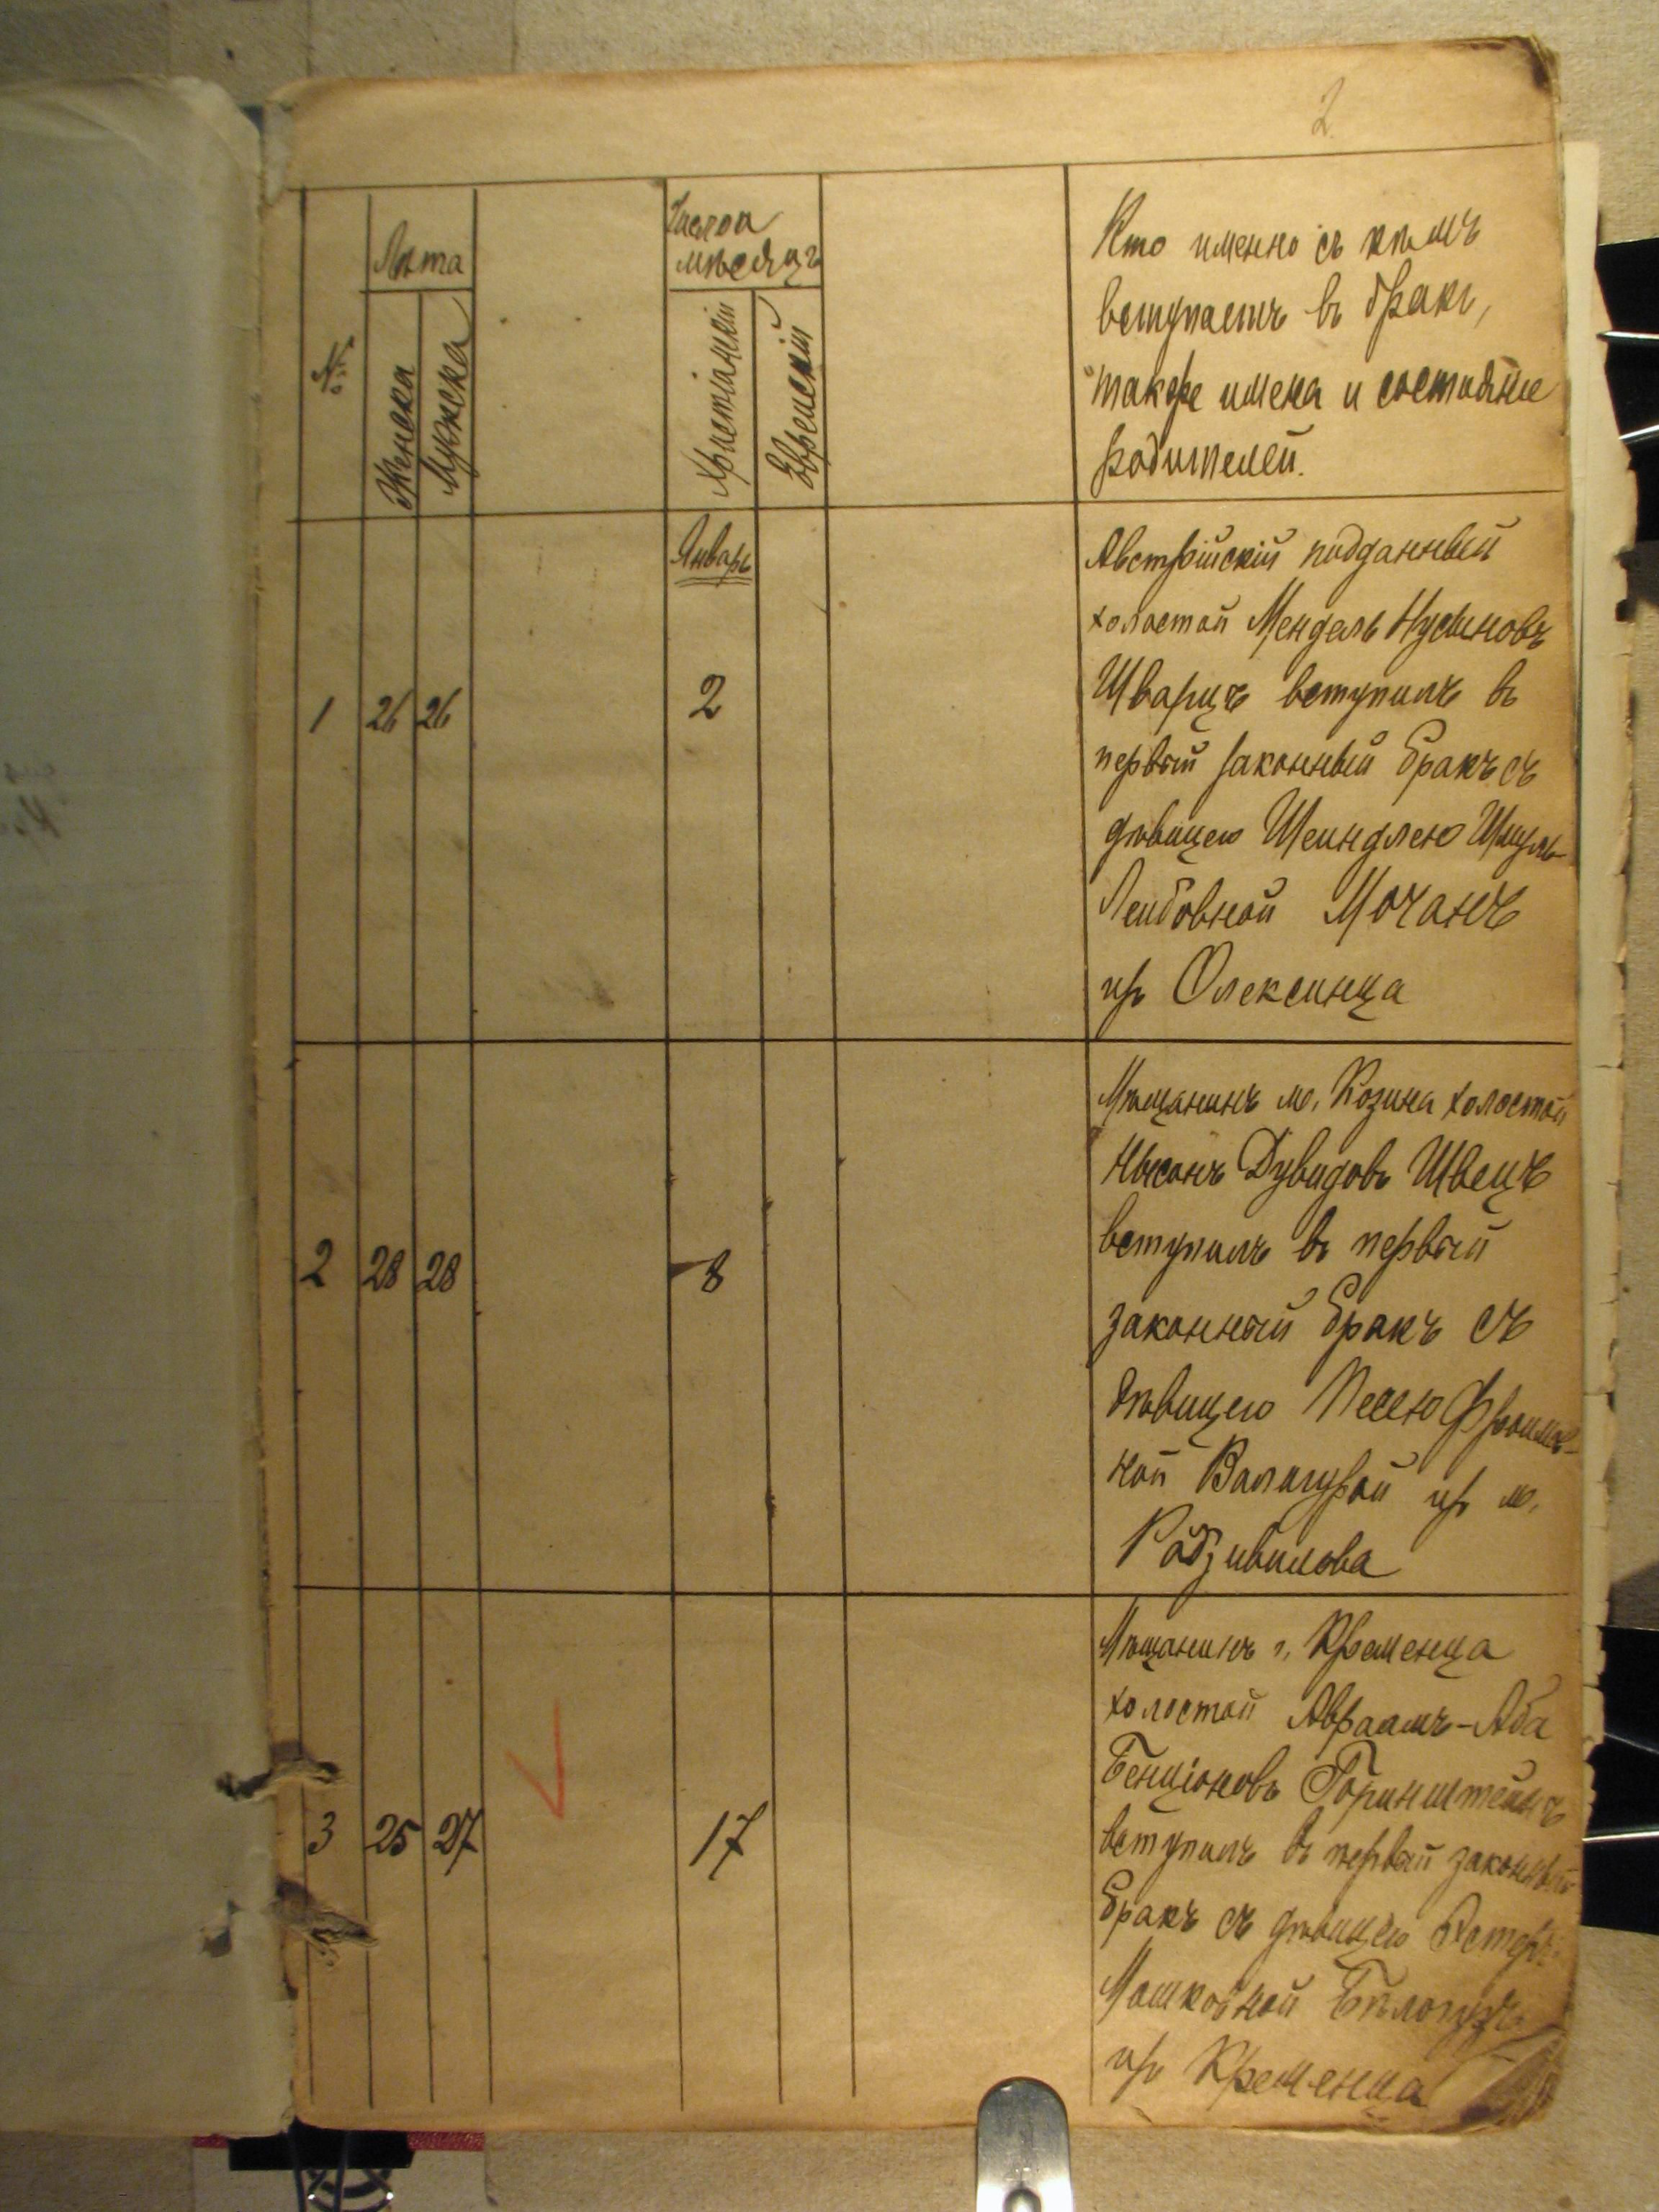 2
№
Лѣта
Женска
Мужска
Число и
мѣсяцъ
Христіанскій
Еврейскій
Кто именно съ кѣмъ
вступаетъ въ бракъ,
также имена и состояніе
родителей.
Январь
1
26
26
2
Австрійскій подданный
холостой Мендель Нусиновъ
Шварцъ вступилъ въ
первый законный бракъ съ
дѣвицею Шейндлею
Лейбовной Мочанъ
из Олексинца
2
28
28
8
Мѣщанинъ м. Козина холостой
Нысонъ Дувидовъ Швецъ
вступилъ въ первый
законный бракъ съ
дѣвицею Песею Фроимов-
ной из м.
Радзивилова
3
25
27
17
Мѣщанинъ г. Кременца
холостой Авраамъ-Аба
Бенціоновъ Горинштейнъ
вступилъ въ первый законный
бракъ съ дѣвицею
Мошковной
из Кременца